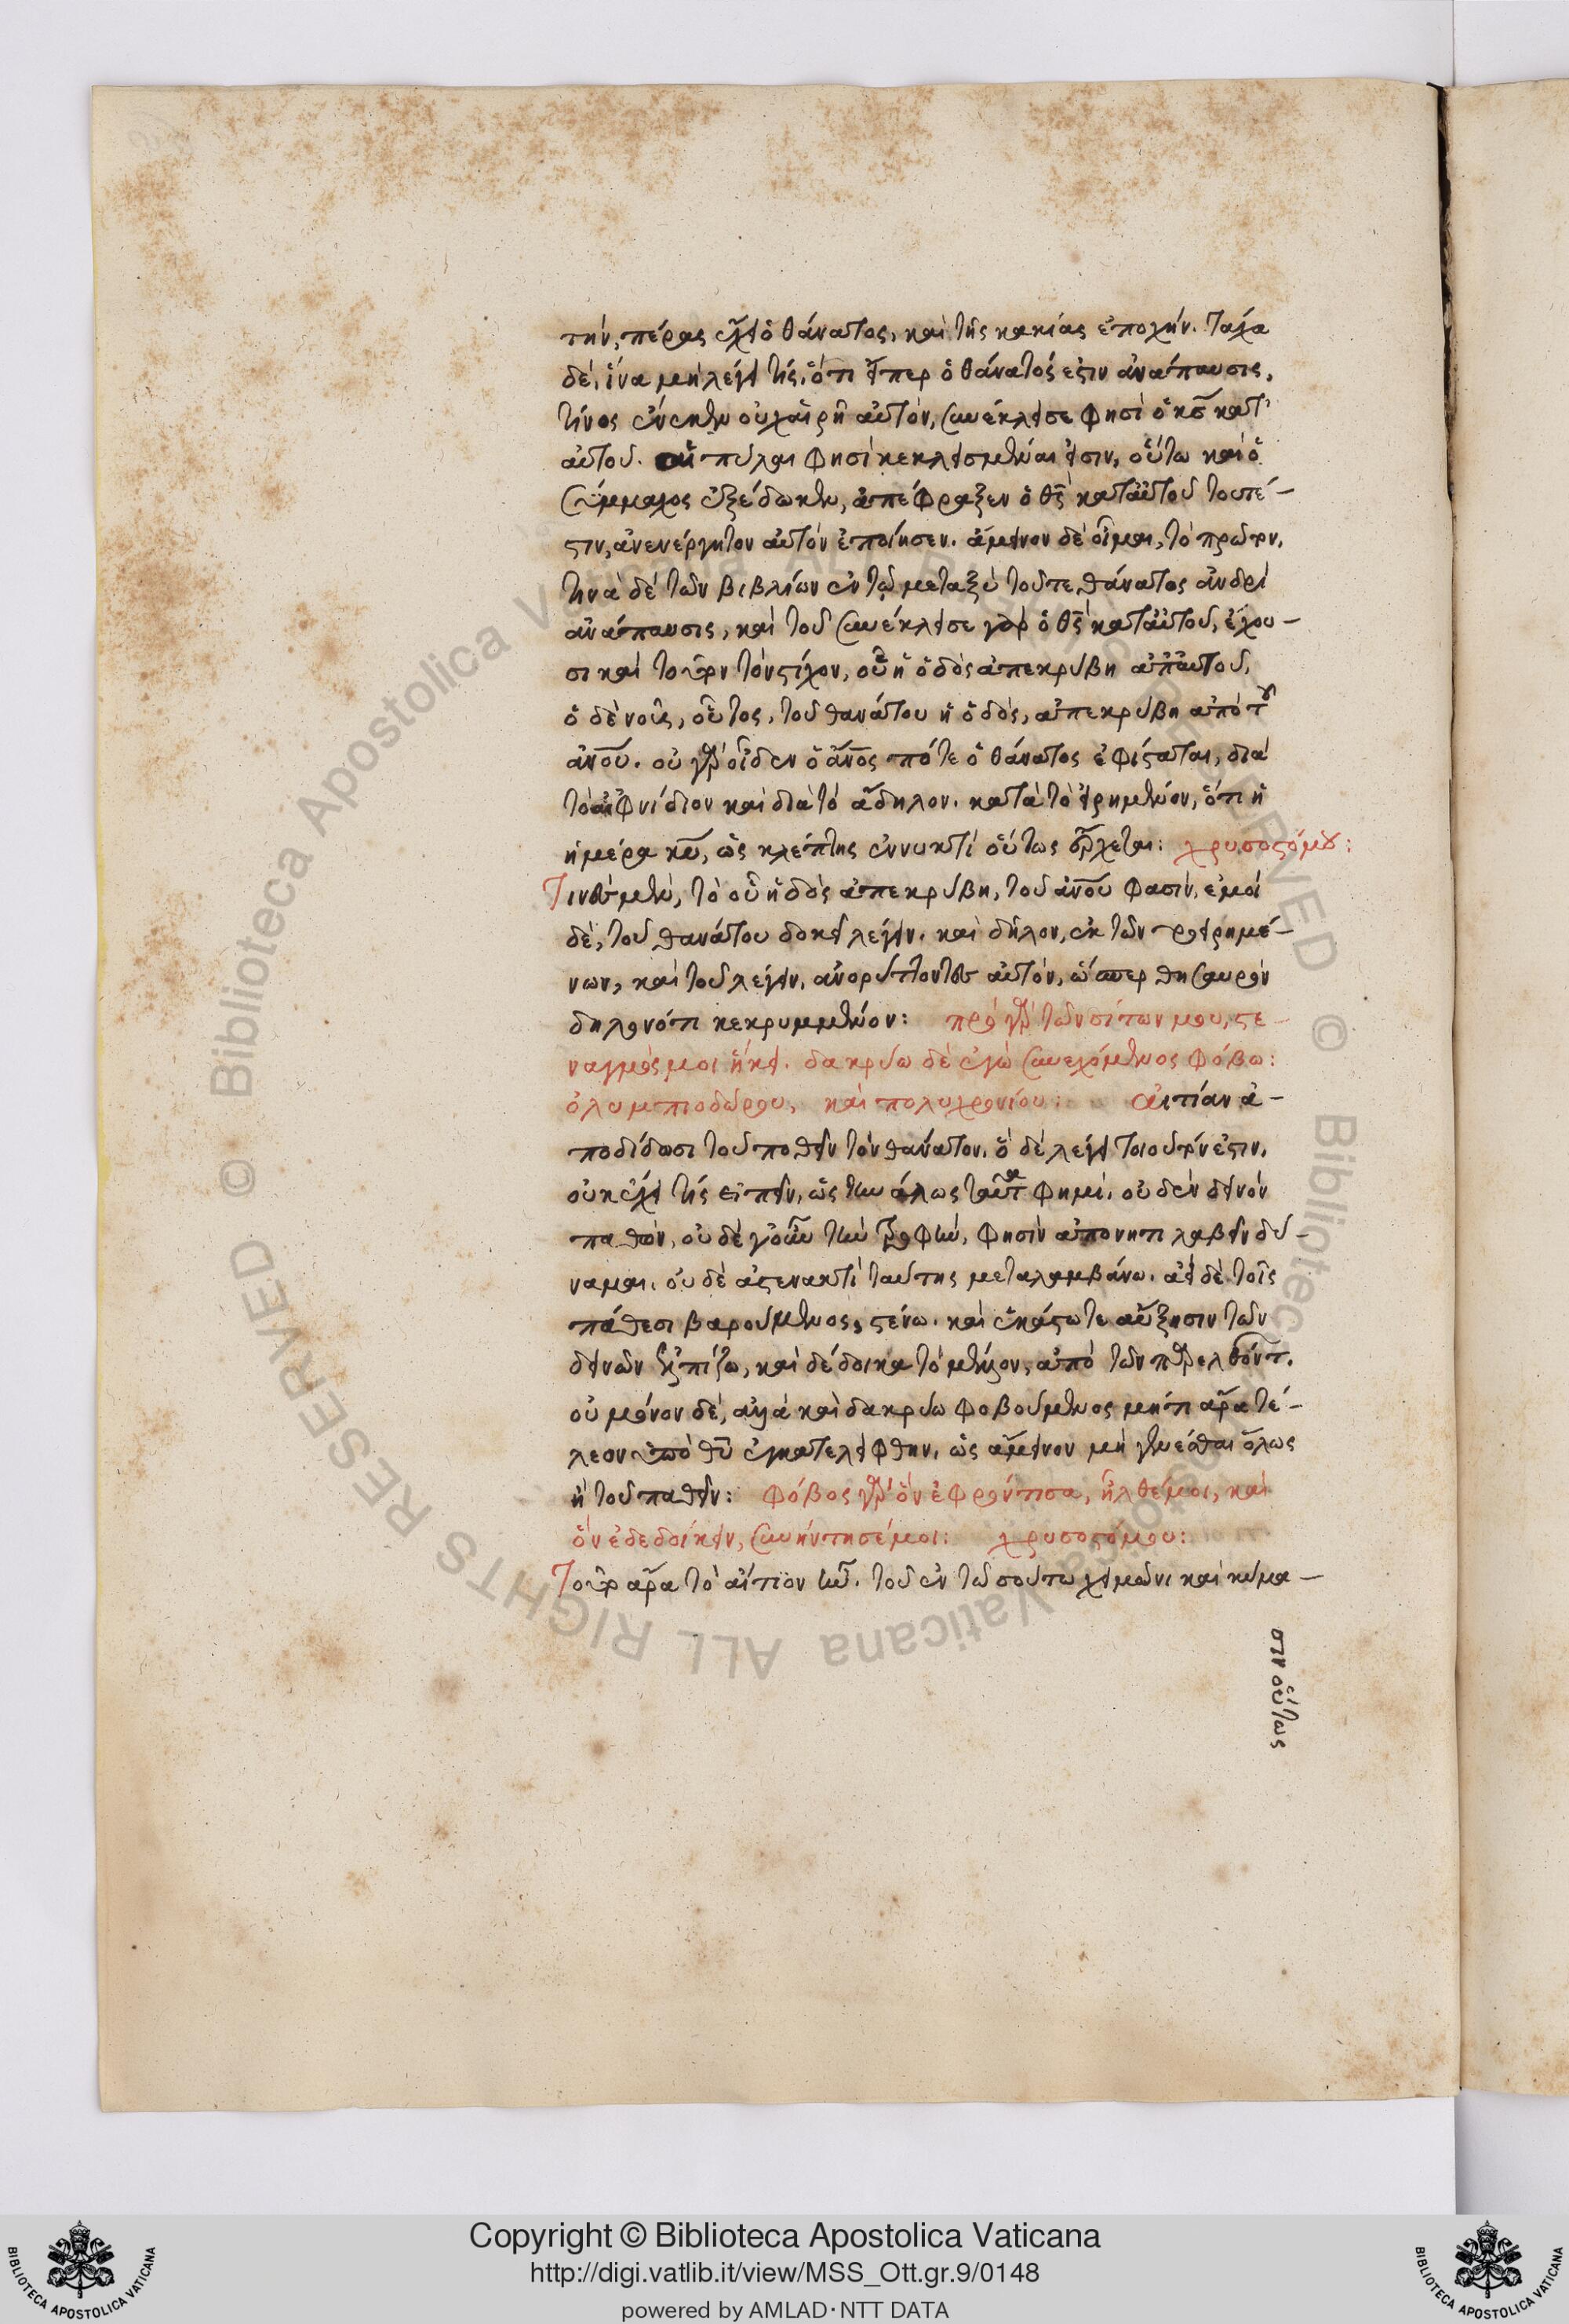 την, πέρας ἔχει ὁ θάνατος, καὶ τῆς κακίας ἐποχήν. Τάχα
δὲ, ἵνα μὴ λέγη τίς, ὅτι εἴπερ ὁ θάνατός ἐστιν ἀνάπαυσις,
τίνος ἕνεκεν οὐχ αἱρῆ αὐτὸν, συνέκλεισε φησὶ ὁ κς κατ'
αὐτοῦ. αἱ πύλαι φησὶ κεκλεισμέναι εἰσιν, οὕτω καὶ ὁ
Σύμμαχος ἐξέδωκεν, ἀπέφραξεν ὁ θς κατ' αὐτοῦ τουτέ-
στιν, ἀνενέργητον αὐτὸν ἐποίησεν. ἄμεινον δὲ οἶμαι, τὸ πρῶτον.
τινὰ δὲ τῶν βιβλίων ἐν τῷ μεταξὺ τοῦ τε, θάνατος ἀνδρὶ
ἀνάπαυσις, καὶ τοῦ συνέκλεισε γὰρ ὁ θς κατ' αὐτοῦ, ἔχου-
σι καὶ τοῦτον τὸν στίχον, οὗ ἡ ὁδὸς ἀπεκρύβη ἀπ' αὐτοῦ,
ὁ δὲ νοῦς, οὗτος, τοῦ θανάτου ἡ ὁδὸς, ἀπεκρύβη ἀπὸ τοῦ
ἀνου. οὐ γὰρ οἶδεν ὁ ἄνος πότε ὁ θάνατος ἐφίσταται, διὰ
τὸ αἰφνίδιον καὶ διὰ τὸ ἄδηλον. κατὰ τὸ εἰρημένον, ὅτι ἡ
ἡμέρα κυ, ὡς κλέπτης ἐν νυκτὶ οὕτως ἔρχεται: χρυσοστόμου:
Τινὲς μὲν, τὸ οὗ ἡ ὁδὸς ἀπεκρύβη, τοῦ ἀνου φασίν, ἐμοὶ
δὲ, τοῦ θανάτου δοκεῖ λέγειν. καὶ δῆλον, ἐκ τῶν προειρημέ-
νων, καὶ τοῦ λέγειν, ἀνορύττοντες αὐτὸν, ὥσπερ θησαυρὸν
δηλονότι κεκρυμμένον: πρὸ γὰρ τῶν σίτων μου, στε-
ναγμός μοι ἥκει. δακρύω δὲ ἐγὼ συνεχόμενος φόβω:
ὀλυμπιοδώρου, καὶ πολυχρονίου: αἰτίαν ἀ-
ποδίδωσι τοῦ ποθεῖν τὸν θάνατον. ὃ δὲ λέγει τοιοῦτόν ἐστιν,
οὐκ ἔχει τίς εἰπεῖν, ὡς τὴν ἄλλως ταῦτα φημι, οὐδὲν δεινὸν
παθών, οὐδὲ γοῦν τὴν τροφὴν, φησὶν ἀπονητι λαβεῖν δύ-
ναμαι, οὐδὲ ἀστενακτὶ ταύτης μεταλαμβάνω. ἀεὶ δὲ τοῖς
πάθεσι βαρούμενος, στένω. καὶ ἑκάστοτε αὔξησιν τῶν
δεινῶν ἐλπίζω, καὶ δέδοικα τὸ μέλλον, ἀπὸ τῶν παρελθόντ.
οὐ μόνον δὲ, ἀλλὰ καὶ δακρύω φοβούμενος μήτι ἄρα τέ-
λεον ὑπὸ θυ ἐγκατελείφθην, ὡς ἄμεινον μὴ γενέσθαι ὅλως
ἢ τοῦ παθεῖν: φόβος γὰρ ὃν ἐφρόντισα, ἦλθέ μοι, καὶ
ὃν ἐδεδοίκειν, συνήντησέ μοι: χρυσοστόμου:
Τοῦτο ἄρα τὸ αἴτιον ἦν. τοῦ ἐν τῶ σούτω χειμῶνι καὶ κύμα-
σιν οὕτως
Copyright © Biblioteca Apostolica Vaticana
http://digi.vatlib.it/view/MSS_Ott.gr.9/0148
powered by AMLAD·NTT DATA